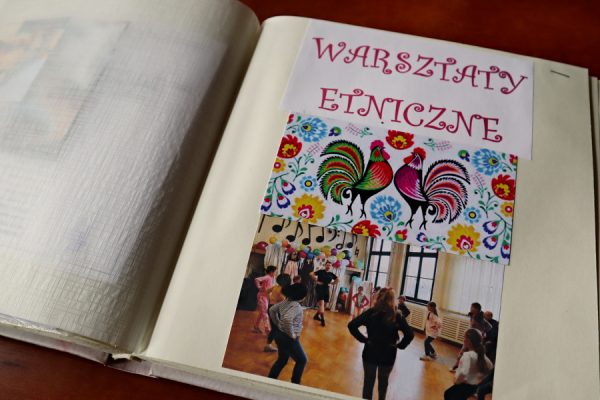 WARSZTATY
ETNICZNE